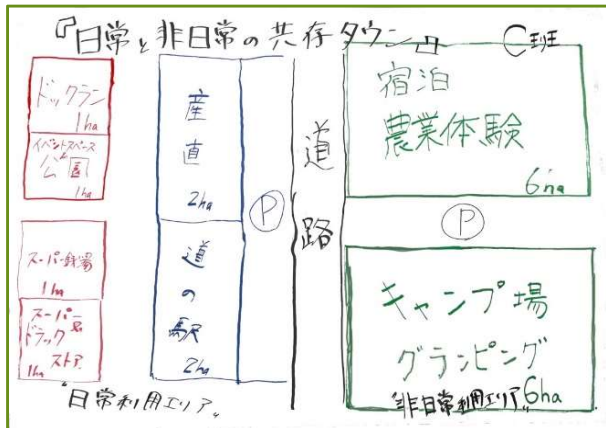 『日常と非日常の共存タウン』
C班
ドックラン
1ha
イベントスペース
公園
1ha
スーパー銭湯
1ha
スーパー&
ドラック
ストア
1ha
産直
2ha
道の駅
2ha
"日常利用エリア"
P
道路
宿泊
農業体験
6ha
P
キャンプ場
グランピング
6ha
"非日常利用エリア"